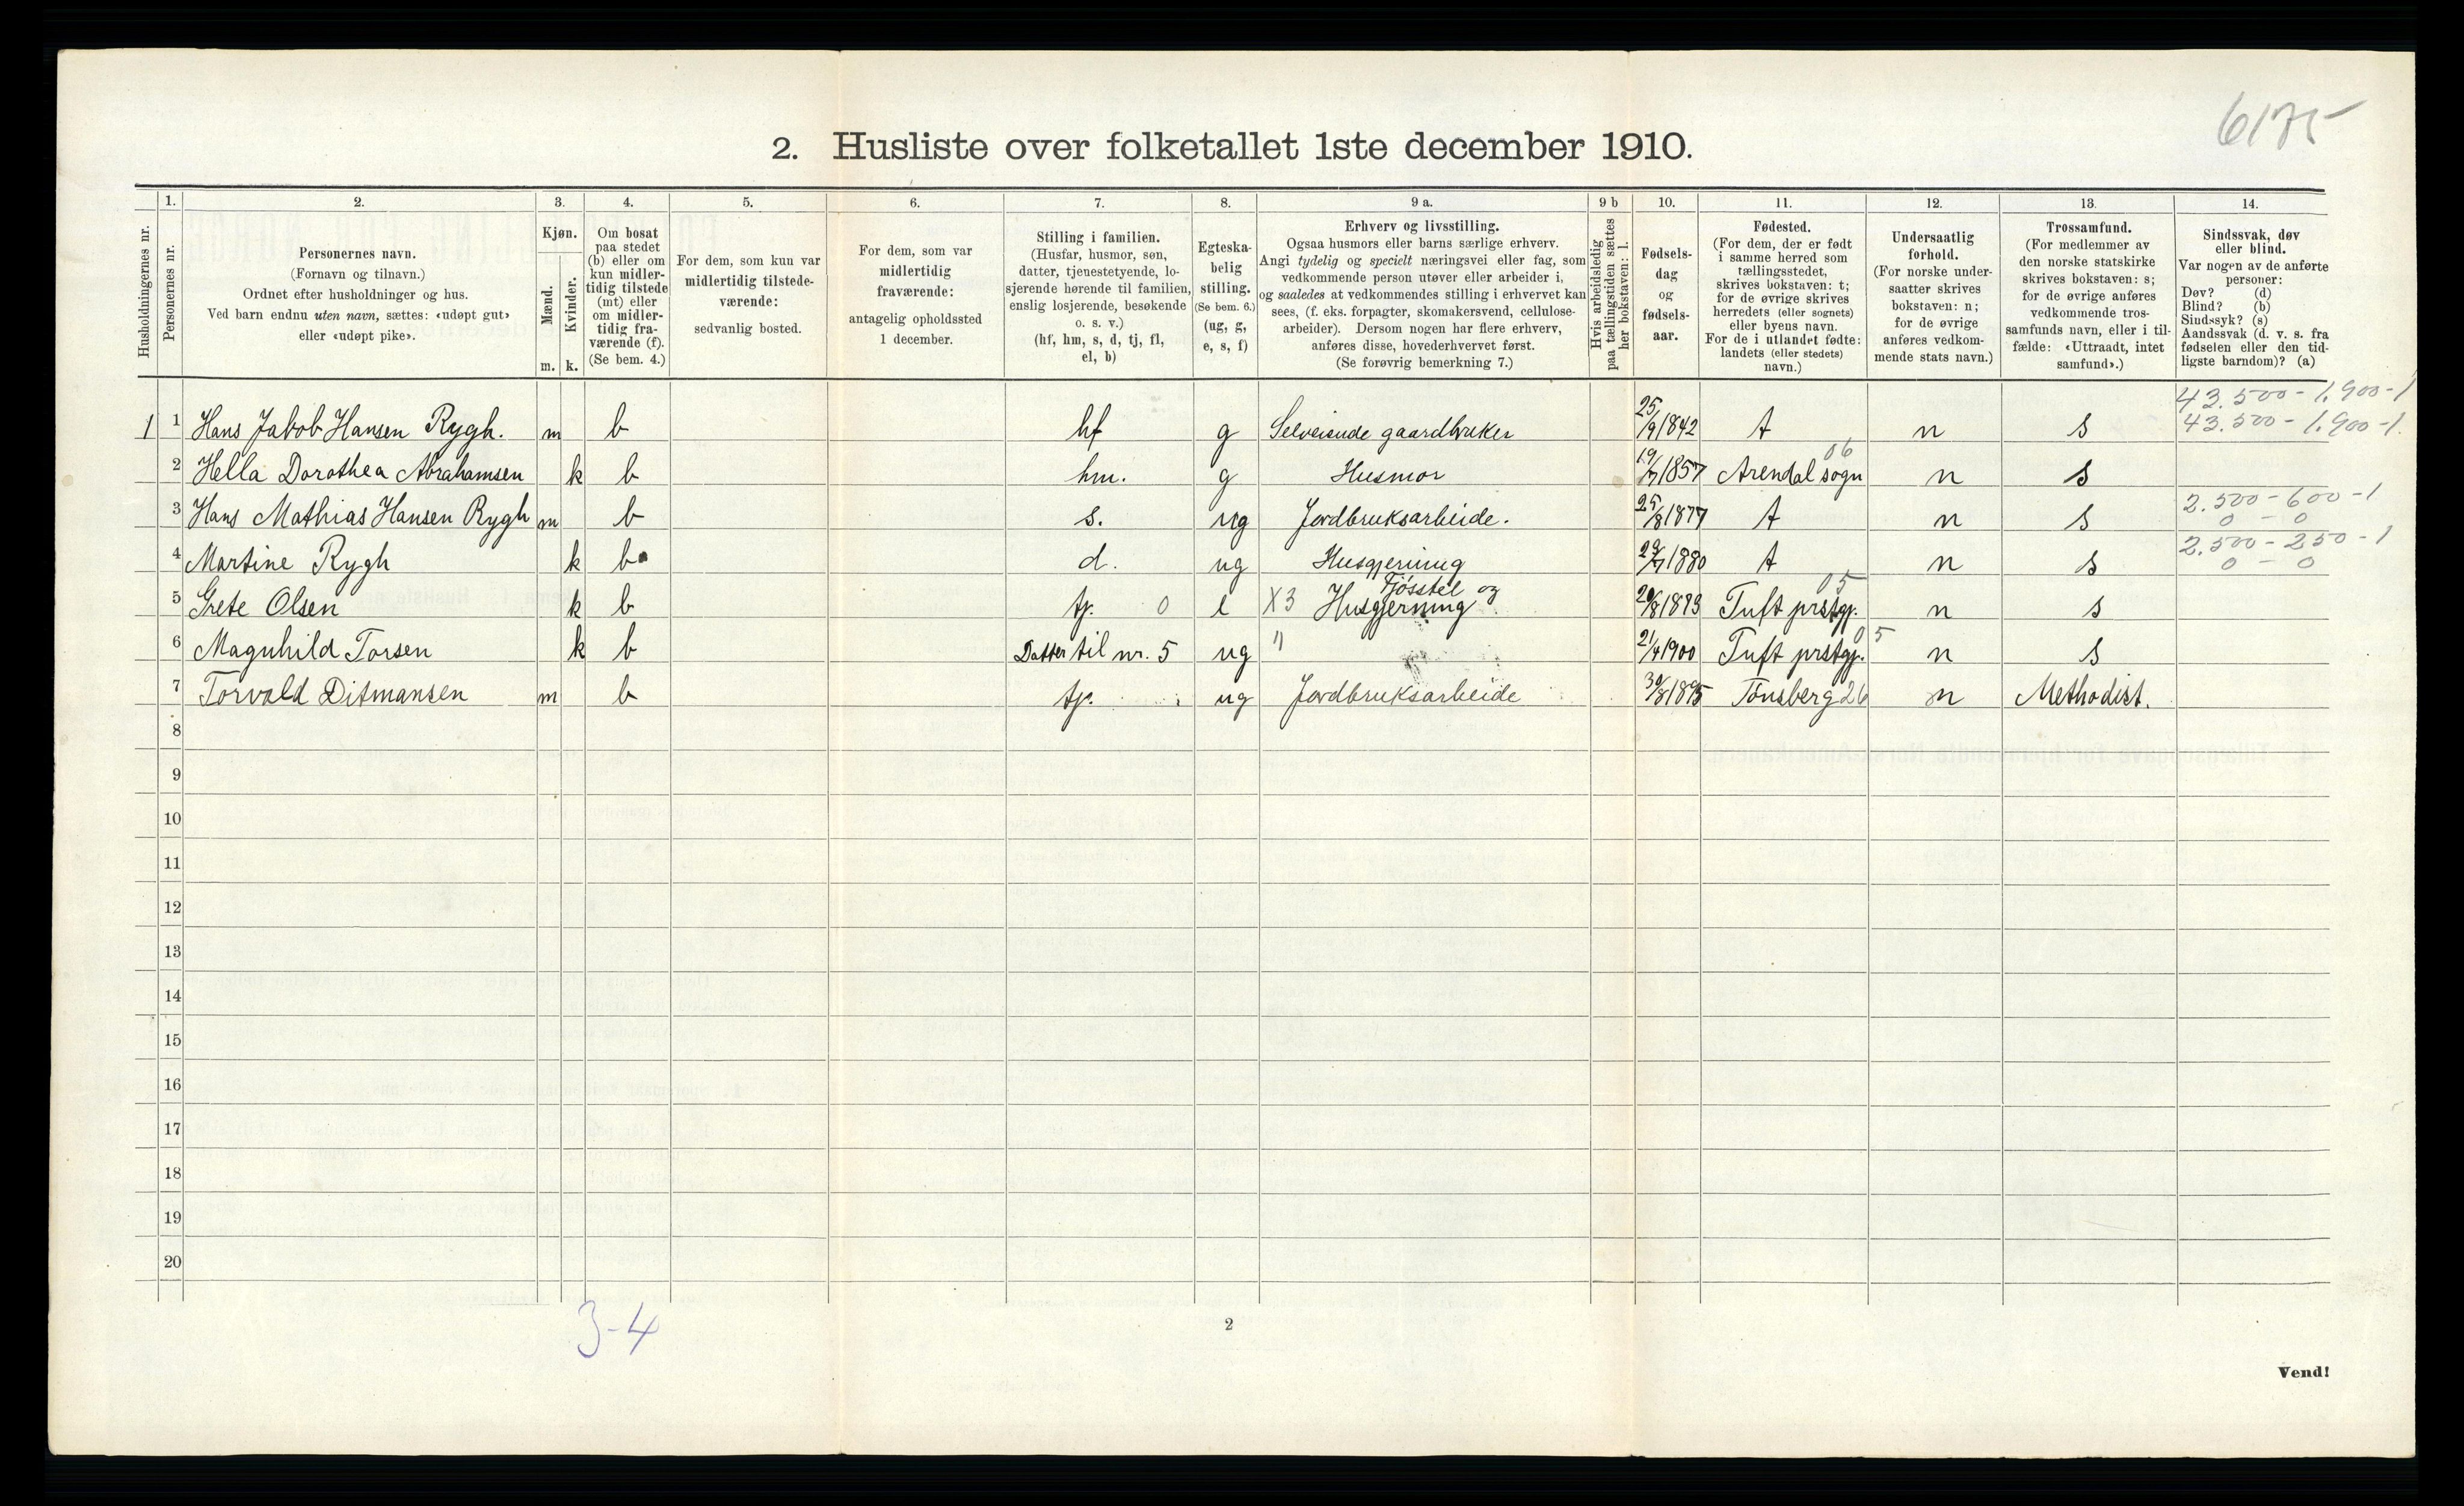 6175
2. Husliste over folketallet 1ste december 1910.
Husholdningernes nr.
1.
Personernes nr.
2.
Personernes navn.
(Fornavn og tilnavn.)
Ordnet efter husholdninger og hus.
Ved barn endnu uten navn, sættes: «udøpt gut»
eller «udøpt pike».
3.
Kjøn.
Mænd.
Kvinder.
m. k.
4.
Om bosat
paa stedet
(b) eller om
kun midler-
tidig tilstede
(mt) eller
om midler-
tidig fra-
værende (f).
(Se bem. 4.)
5.
For dem, som kun var
midlertidig tilstede-
værende:
sedvanlig bosted.
6.
For dem, som var
midlertidig
fraværende:
antagelig opholdssted
1 december.
7.
Stilling i familien.
(Husfar, husmor, søn,
datter, tjenestetyende, lo-
sjerende hørende til familien,
enslig losjerende, besøkende
o. s. v.)
(hf, hm, s, d, tj, fl,
el, b)
8.
Egteska-
belig
stilling.
(Se bem. 6.)
(ug, g,
e, s, f)
9 a.
Erhverv og livsstilling.
Ogsaa husmors eller barns særlige erhverv.
Angi tydelig og specielt næringsvei eller fag, som
vedkommende person utøver eller arbeider i,
og saaledes at vedkommendes stilling i erhvervet kan
sees, (f. eks. forpagter, skomakersvend, cellulose-
arbeider). Dersom nogen har flere erhverv,
anføres disse, hovederhvervet først.
(Se forøvrig bemerkning 7.)
9 b
Hvis arbeidsledig
paa tællingstiden sættes
her bokstaven: l.
10.
Fødsels-
dag
og
fødsels-
aar.
11.
Fødested.
(For dem, der er født
i samme herred som
tællingsstedet,
skrives bokstaven: t;
for de øvrige skrives
herredets (eller sognets)
eller byens navn.
For de i utlandet fødte:
landets (eller stedets)
navn.)
12.
Undersaatlig
forhold.
(For norske under-
saatter skrives
bokstaven: n;
for de øvrige
anføres vedkom-
mende stats navn.)
13.
Trossamfund.
(For medlemmer av
den norske statskirke
skrives bokstaven: s;
for de øvrige anføres
vedkommende tros-
samfunds navn, eller i til-
fælde: «Uttraadt, intet
samfund».)
14.
Sindssvak, døv
eller blind.
Var nogen av de anførte
personer:
Døv? (d)
Blind? (b)
Sindssyk? (s)
Aandssvak (d. v. s. fra
fødselen eller den tid-
ligste barndom)? (a)
43.500 - 1.900 - 1
1 1 Hans Jakob Hansen Rygh. m b hf g Selveiende gaardbruker 25/9 1842 t n s 43.500 - 1.900 - 1.
06
2 Hella Dorothea Abrahamsen k b hm. g Husmor 19/7 1857 Arendal sogn n s
2.500 - 600 - 1
3 Hans Mathias Hansen Rygh m b s. ug Jordbruksarbeide. 25/8 1877 t n s 0 - 0
2.500 - 250 - 1
4 Martine Rygh k b d. ug Husgjerning 29/7 1880 t n s 0 - 0
Fjøsstel og 05
5 Grete Olsen k b tj. 0 e X3 Husgjerning 20/8 1873 Tuft prstgj. n s
05
6 Magnhild Torsen k b Datter til nr. 5 ug " 21/4 1900 Tuft prstgj. n s
7 Torvald Ditmansen m b tj. ug Jordbruksarbeide 30/8 1895 Tønsberg 26 n Methodist.
8
9
10
11
12
13
14
15
16
17
18
19
20
3-4
2
Vend!